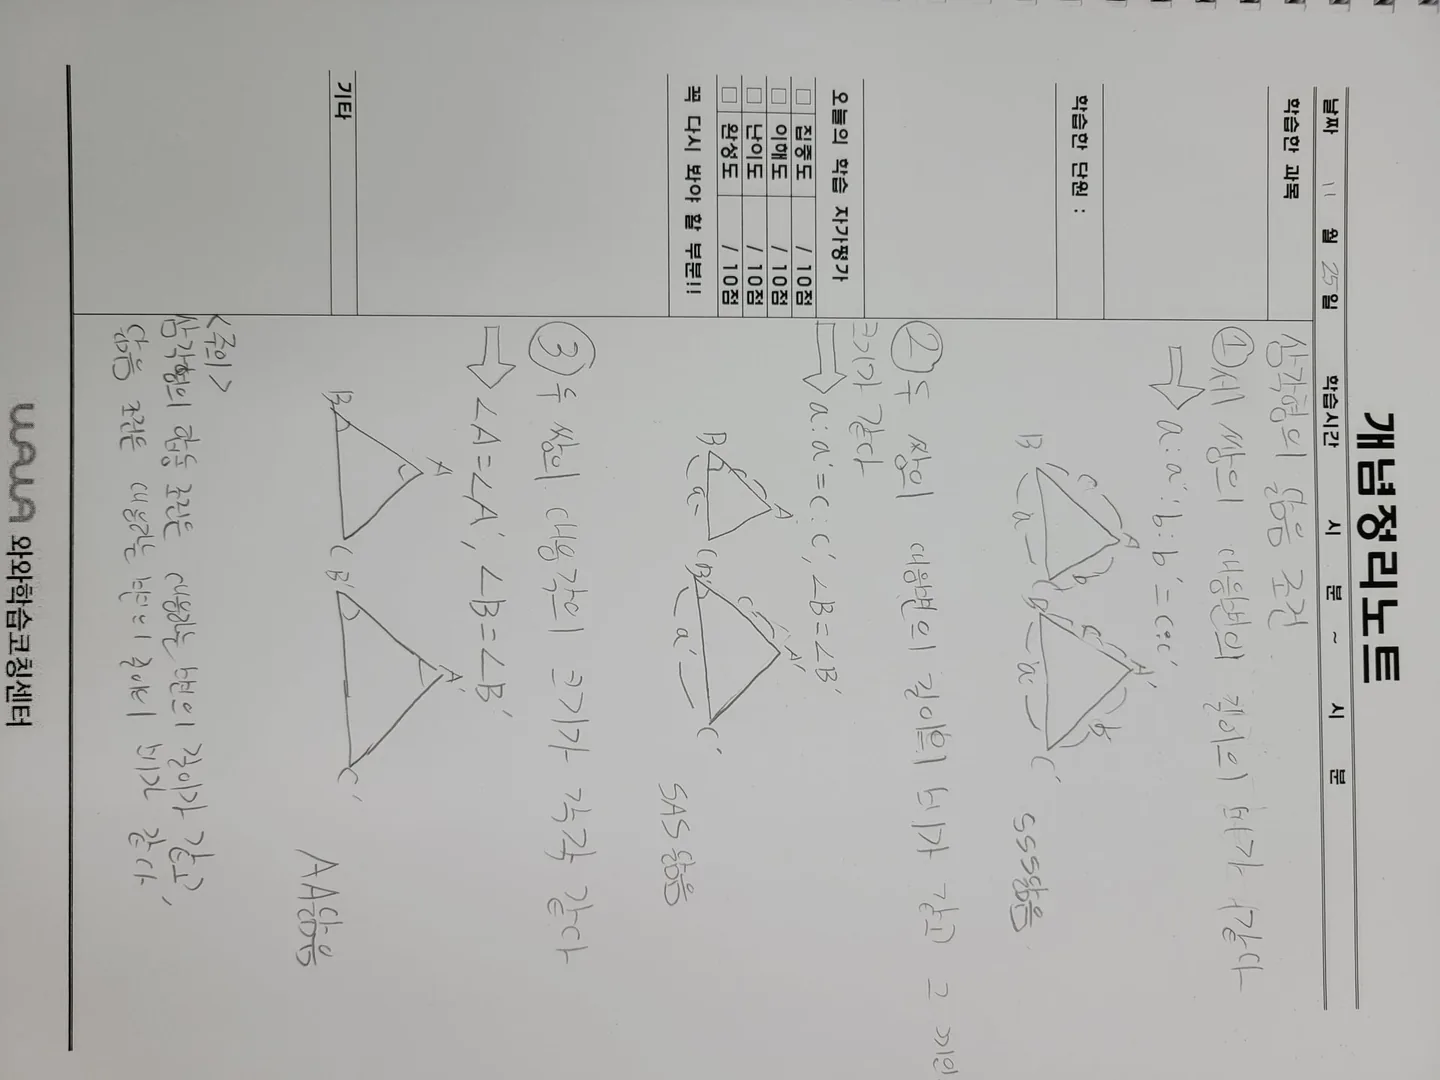 개념정리노트
날짜 11 월 25 일 학습시간 시 분 ~ 시 분
학습한 과목
학습한 단원 :
오늘의 학습 자가평가
□ 집중도 / 10점
□ 이해도 / 10점
□ 난이도 / 10점
□ 완성도 / 10점
꼭 다시 봐야 할 부분!!
기타
삼각형의 닮음 조건
① 세 쌍의 대응변의 길이의 비가 같다
⇒ a:a'=b:b'=c:c'
A
B
C
a
b
c
A'
B'
C'
a'
b'
c'
SSS닮음
② 두 쌍의 대응변의 길이의 비가 같고 그 끼인
크기가 같다
⇒ a:a'=c:c', ∠B=∠B'
A
B
C
a
c
A'
B'
C'
a'
c'
SAS닮음
③ 두 쌍의 대응각의 크기가 각각 같다
⇒ ∠A=∠A', ∠B=∠B'
A
B
C
A'
B'
C'
AA닮음
<주의>
삼각형의 합동 조건은 대응하는 변의 길이가 같고,
닮음 조건은 대응하는 변의 길이의 비가 같다.
WAWA 와와학습코칭센터